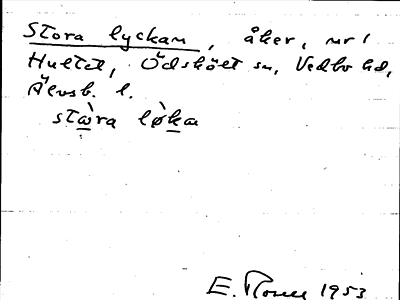 Stora lyckan, åker, nr 1
Hultet, Ödskölt sn, Vedbo hd,
Älvsb. l.
stὼra lø̀ka
E. 1953